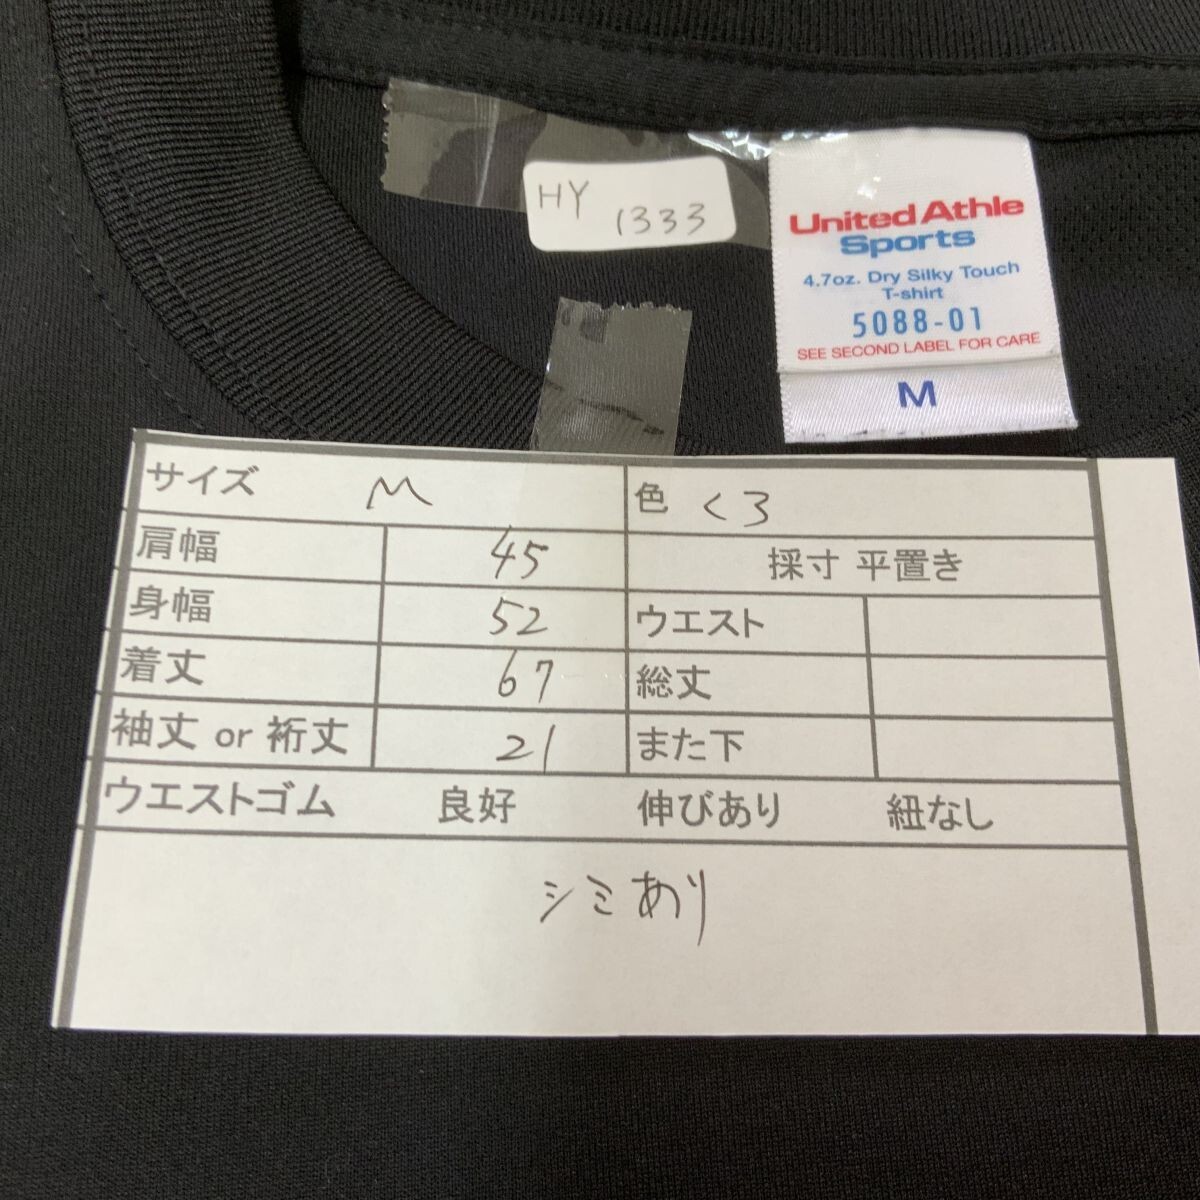 HY
1333
United Athle
Sports
4.7oz. Dry Silky Touch
T-shirt
5088-01
SEE SECOND LABEL FOR CARE
M
サイズ M 色 くろ
肩幅 45 採寸 平置き
身幅 52 ウエスト
着丈 67 総丈
袖丈 or 裄丈 21 また下
ウエストゴム 良好 伸びあり 紐なし
シミあり